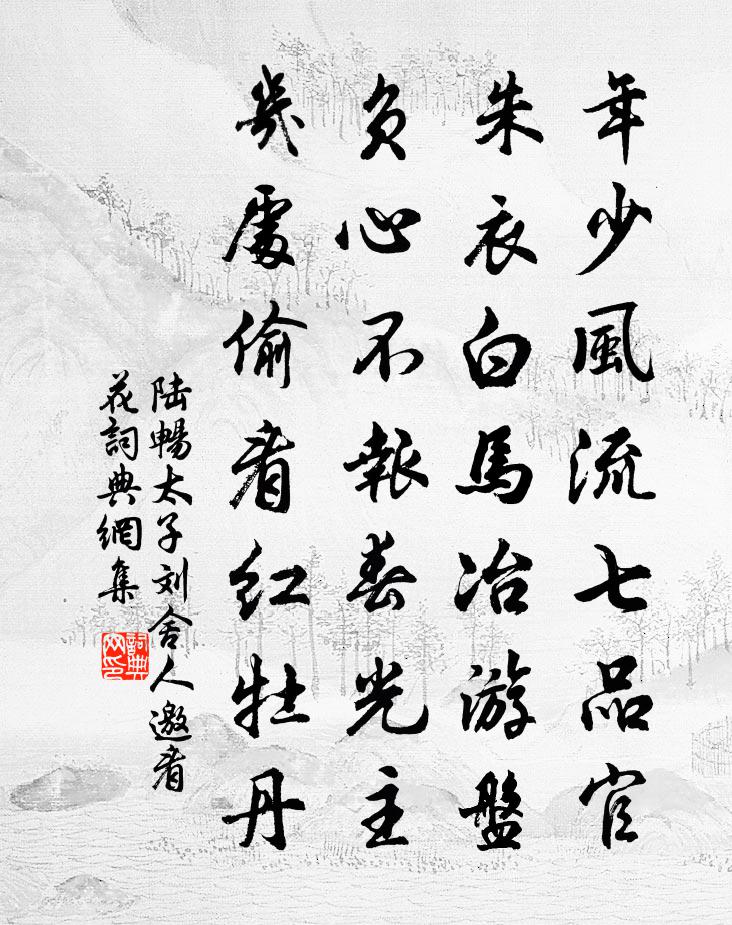 年少風流七品官
朱衣白馬冶游盤
負心不報春光主
幾處偷看紅牡丹
陆暢太子刘舍人邀看
花詞典網集
詞典
网印